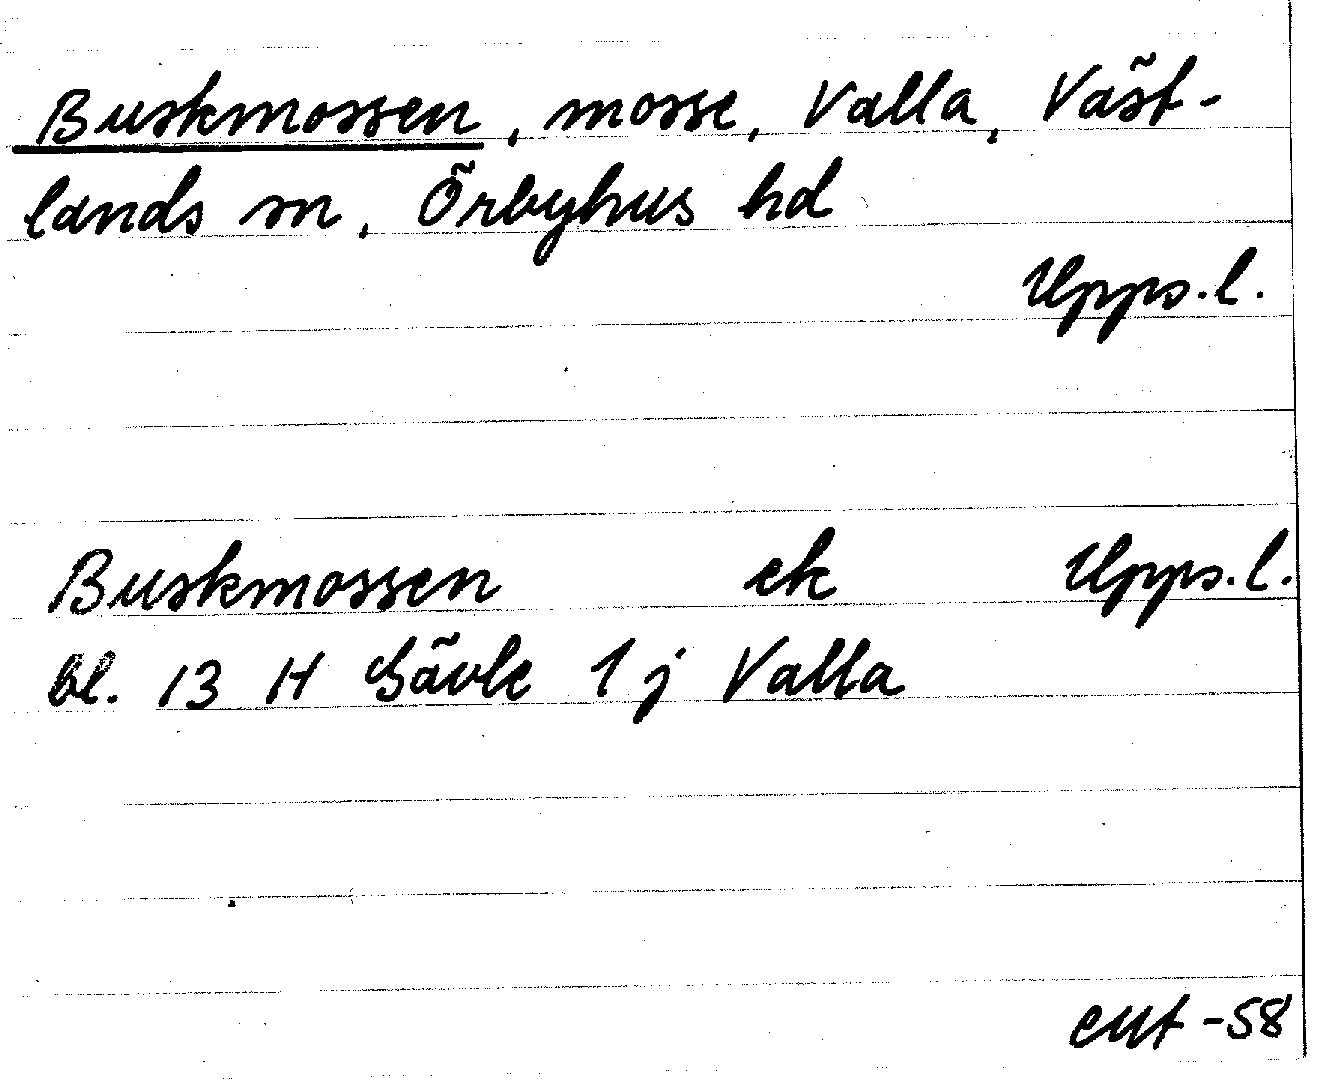 Buskmossen, mosse, Valla, Väst-
lands sn, Örbyhus hd
Upps.l.
Buskmossen ek Upps.l.
bl. 13 H Gävle 1 j Valla
-58